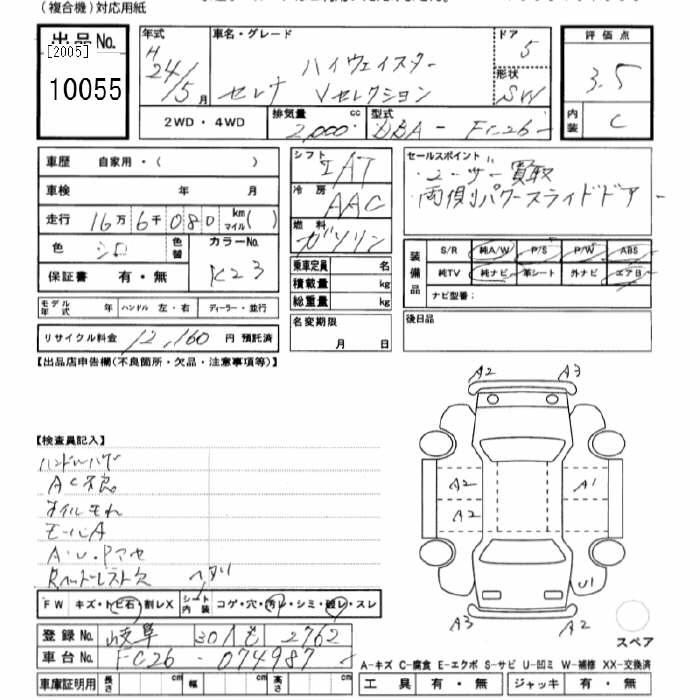 (複合機)対応用紙
出品No.
[2005]
10055
年式
H
24/5月
車名・グレード
ハイウェイスター
セレナ Vセレクション
ドア
5
形状
SW
評価点
3.5
内装
C
2WD・4WD
排気量
2,000cc
型式
DBA- FC26
車歴 自家用・( )
車検 年 月
走行 16万6千080 km マイル( )
色 シロ 色替
カラーNo.
K23
保証書 有・無
モデル年式 年 ハンドル 左・右 ディーラー・並行
リサイクル料金 12,160 円 預託済
シフト
IAT
冷房
AAC
燃料
ガソリン
乗車定員 名
積載量 kg
総重量 kg
名変期限
月 日
セールスポイント
・ユーザー買取
・両側パワースライドドアー
装備品
S/R 純A/W P/S P/W ABS
純TV 純ナビ 革シート 外ナビ エアB
ナビ型番:
後日品
【出品店申告欄(不良箇所・欠品・注意事項等)】
【検査員記入】
ハンドルハゲ
AC不良
オイルモレ
モールA
A・U・Pマセ
Rハードレスト欠
ヘタリ
FW キズ・トビ石・割レX
シート内装 コゲ・穴・汚レ・シミ・破レ・スレ
登録No. 岐阜 301 も 2762
車台No. FC26 - 074987
車庫証明用 長さ cm 幅 cm 高さ cm
A2 A3
A2 A1
A2
U1
A3 A2
スペア
A-キズ C-腐食 E-エクボ S-サビ U-凹ミ W-補修 XX-交換済
工具 有・無 ジャッキ 有・無